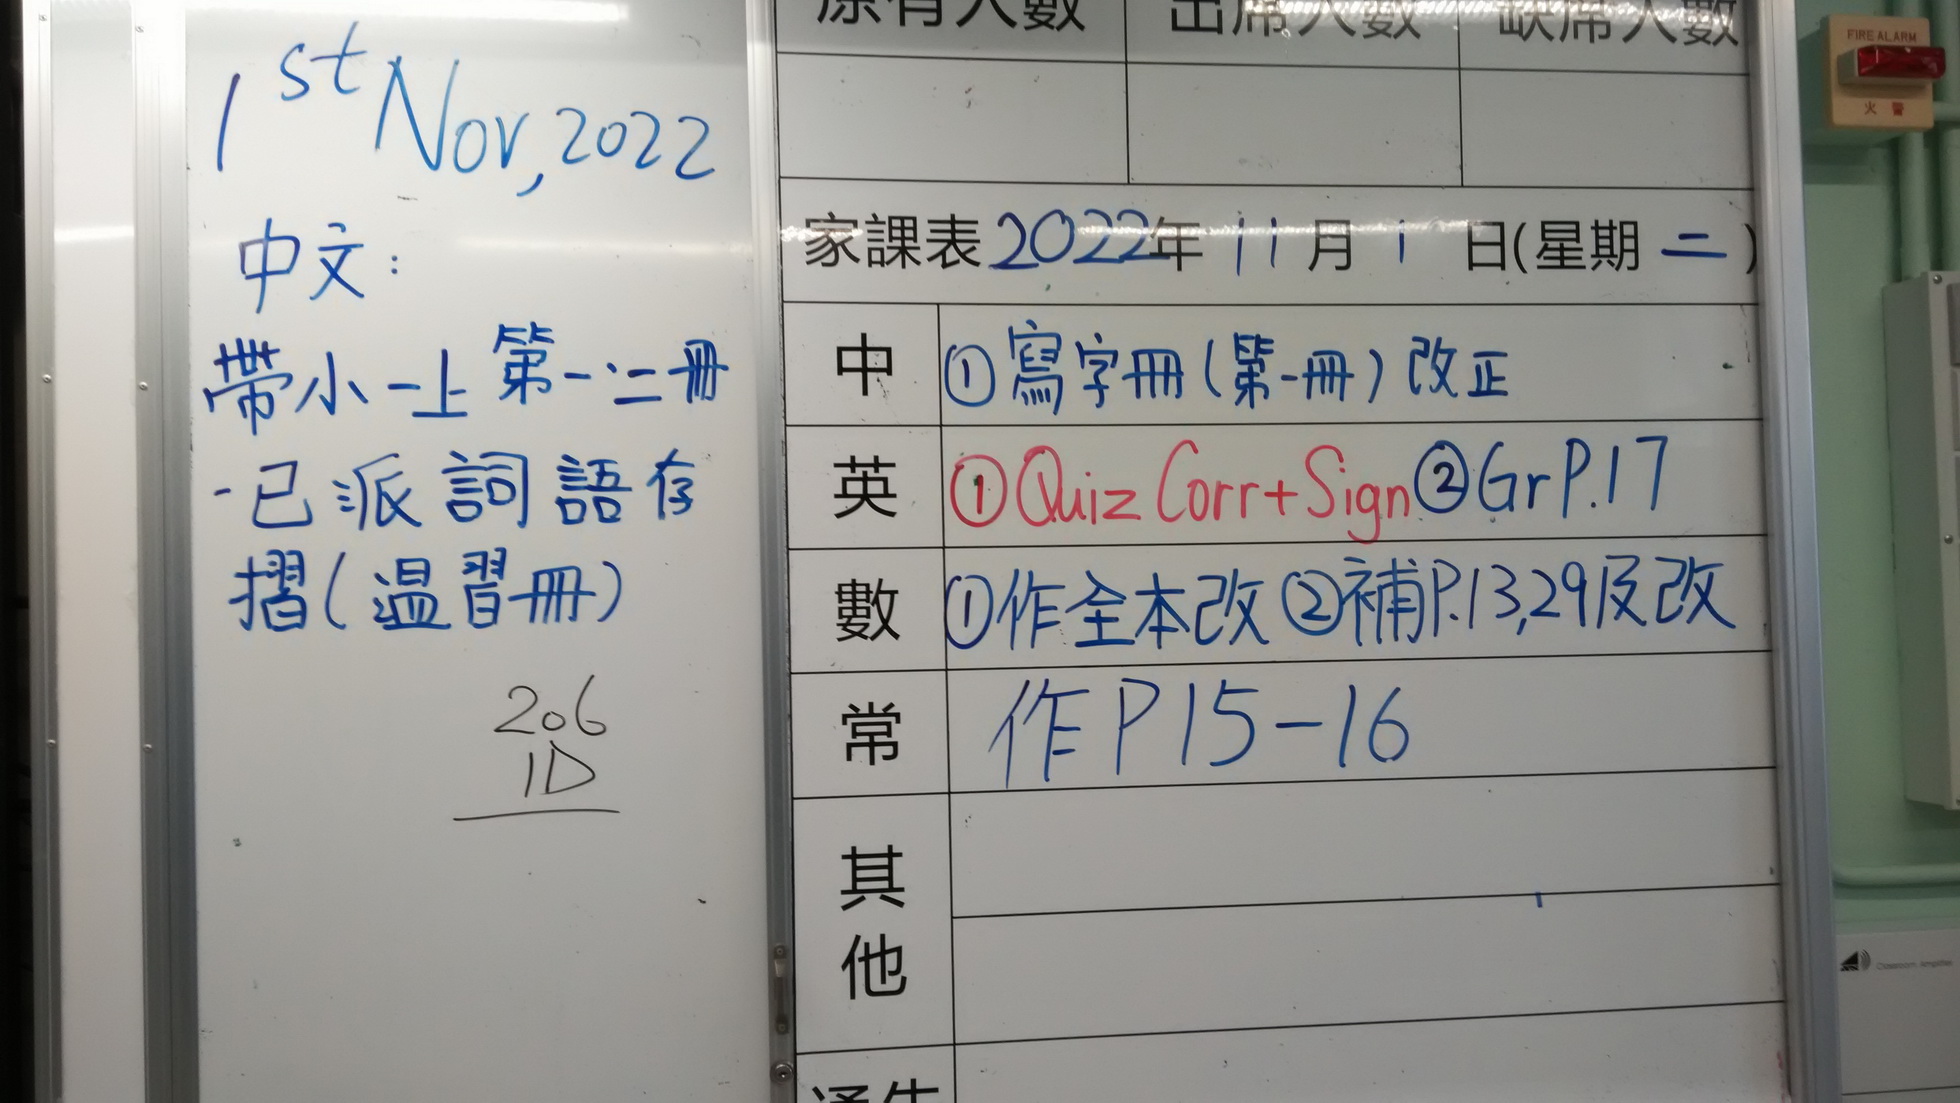 1st Nov, 2022
中文：
帶小一上第一.二冊
-已派詞語存
摺(温習冊)
206
1D
原有人數 出席人數 缺席人數
家課表2022年11月1日(星期二)
中 ①寫字冊(第一冊)改正
英 ①Quiz Corr+Sign②Gr P.17
數 ①作全本改②補P.13,29及改
常 作P15-16
其他
通告
FIRE ALARM
火警
Classroom Amplifier